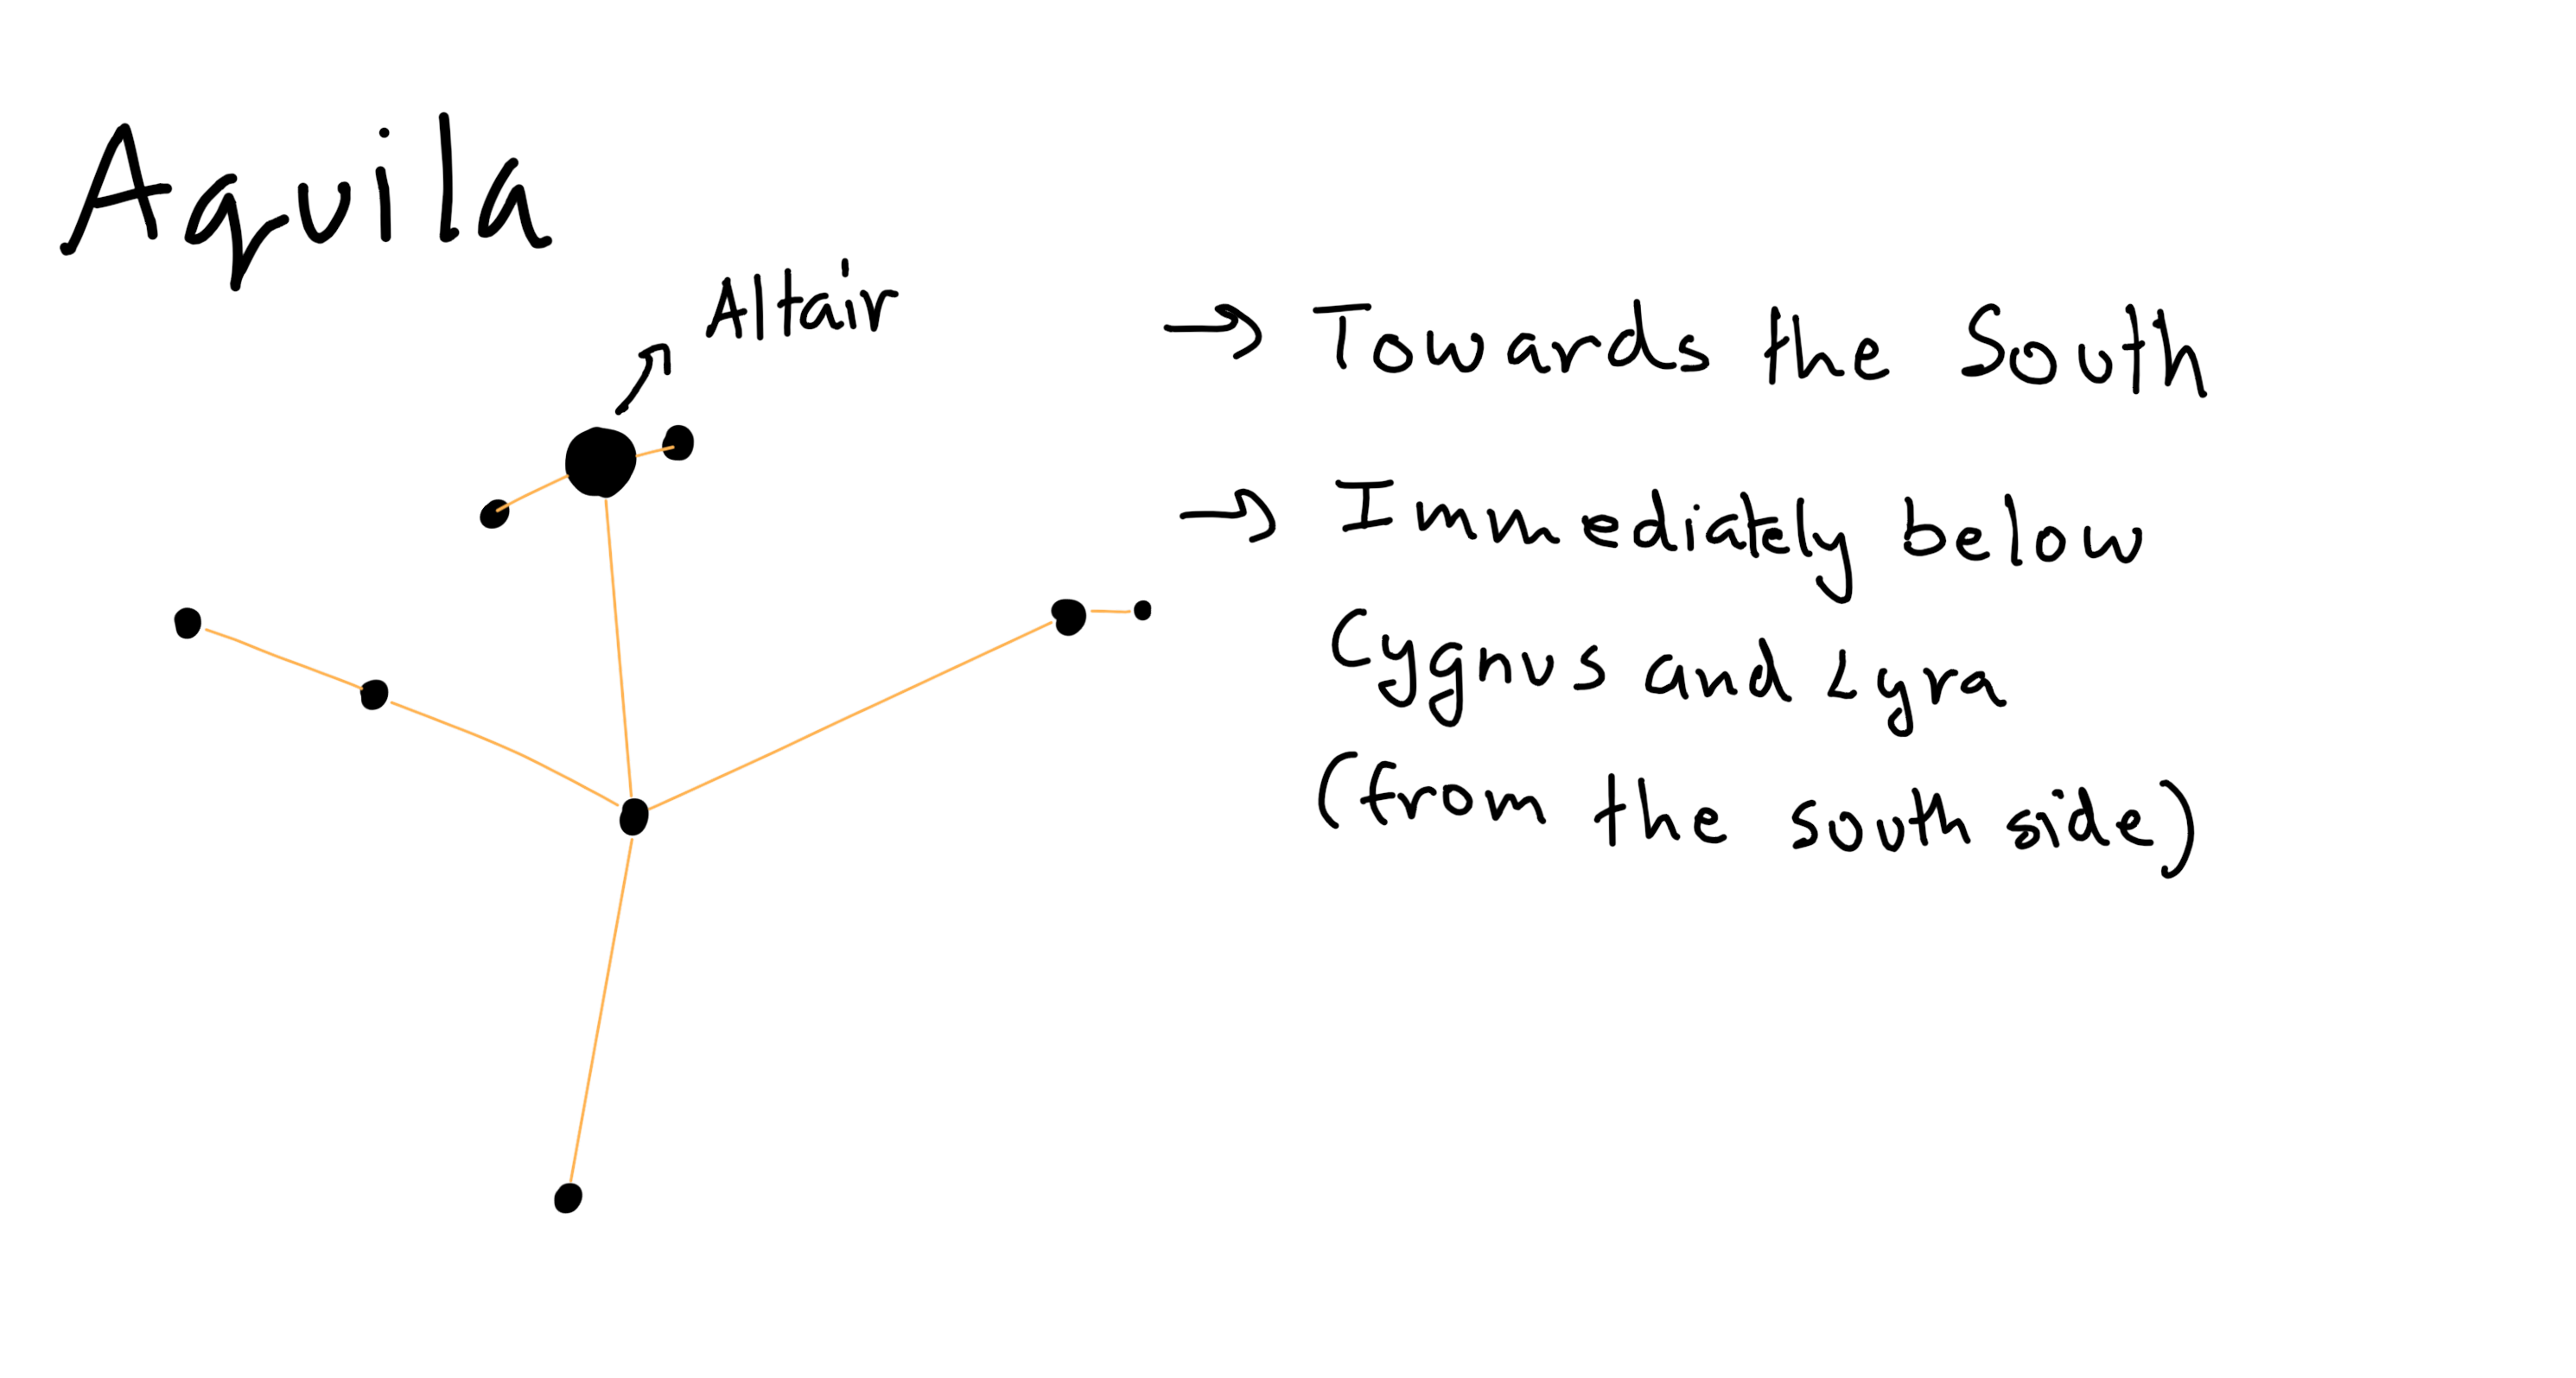 Aquila
Altair
→ Towards the South
→ Immediately below
Cygnus and Lyra
(from the south side)